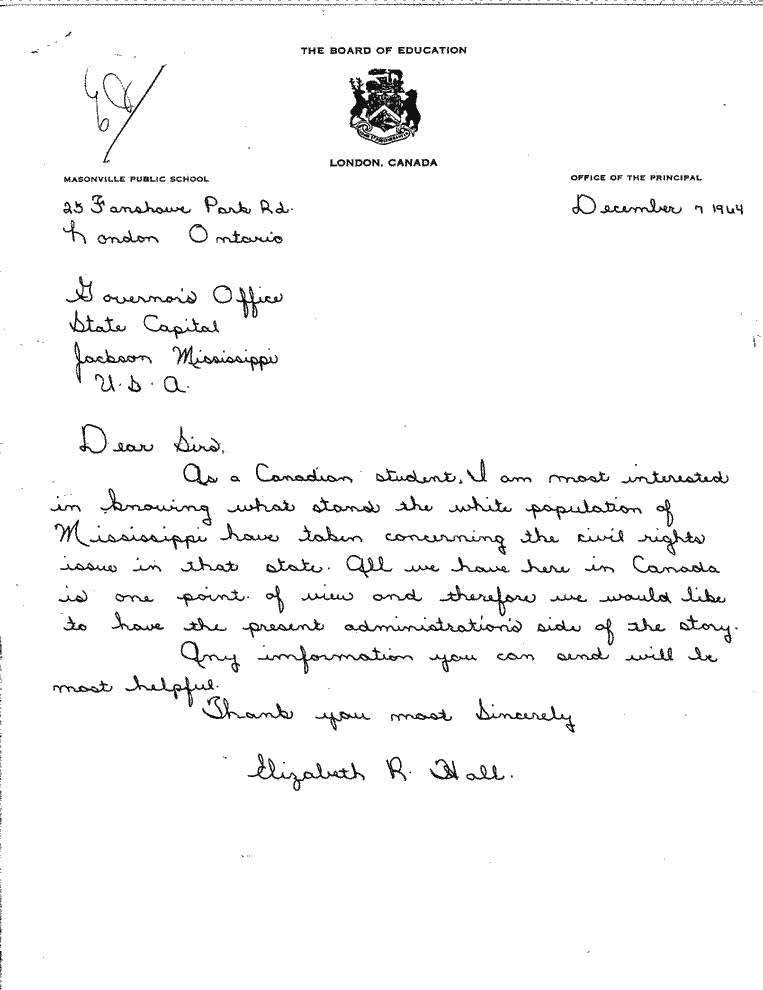 THE BOARD OF EDUCATION
LONDON, CANADA
MASONVILLE PUBLIC SCHOOL
OFFICE OF THE PRINCIPAL
25 Fanshowe Park Rd.
London Ontario
December 7 1964
Governor's Office
State Capital
Jackson Mississippi
U.S.A.
Dear Sirs,
As a Canadian student, I am most interested
in knowing what stand the white population of
Mississippi have taken concerning the civil rights
issue in that state. All we have here in Canada
is one point of view and therefore we would like
to have the present administration's side of the story.
Any imformation you can send will be
most helpful.
Thank you most Sincerely
Elizabeth R. Hall.